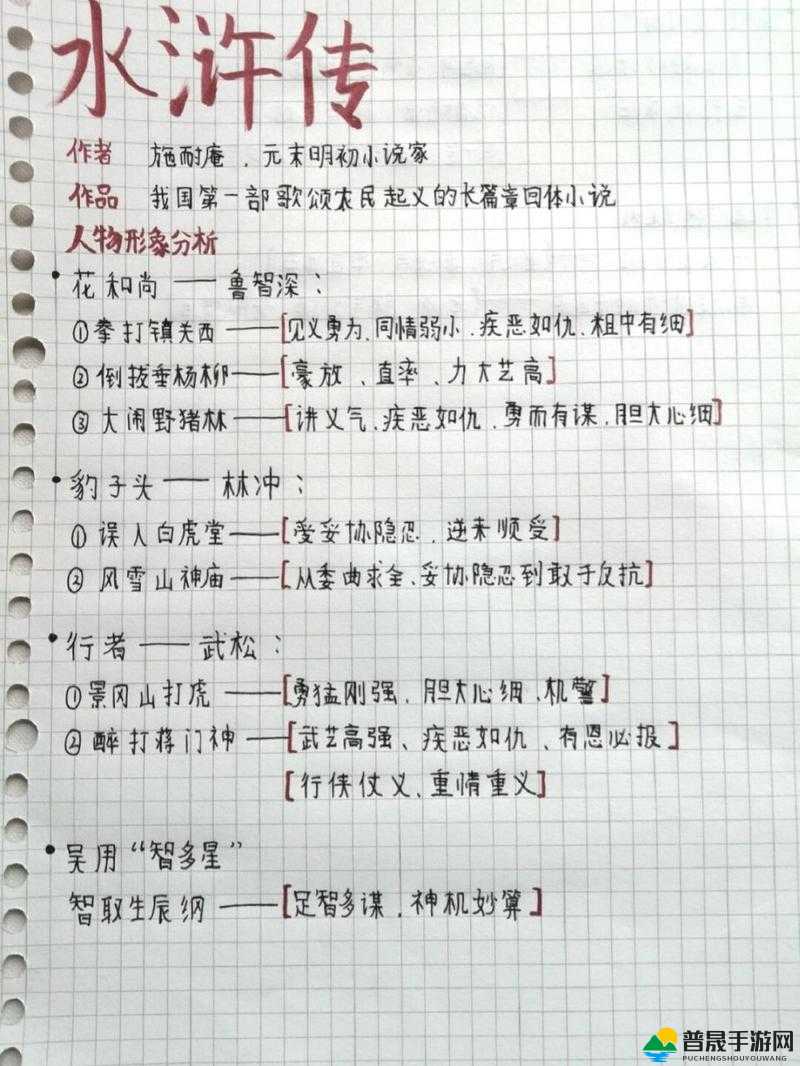 水浒传
作者 施耐庵，元末明初小说家
作品 我国第一部歌颂农民起义的长篇章回体小说
人物形象分析
• 花和尚 —— 鲁智深：
①拳打镇关西 ——[见义勇为、同情弱小、疾恶如仇、粗中有细]
②倒拔垂杨柳——[豪放、直率、力大艺高]
③大闹野猪林——[讲义气、疾恶如仇、勇而有谋、胆大心细]
• 豹子头 —— 林冲：
①误入白虎堂——[爱妥协隐忍、逆来顺受]
②风雪山神庙——[从委曲求全、妥协隐忍到敢于反抗]
• 行者 —— 武松：
①景冈山打虎 ——[勇猛刚强、胆大心细、机警]
②醉打蒋门神——[武艺高强、疾恶如仇、有恩必报]
[行侠仗义、重情重义]
• 吴用“智多星”
智取生辰纲 ——[足智多谋，神机妙算]
普晟手游网
PUCHENGSHOUYOUWANG